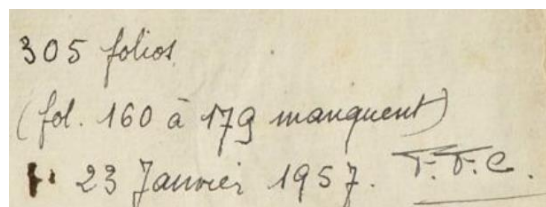 305 folios
(fol. 160 à 179 manquent)
23 Janvier 1957. T.T.C.